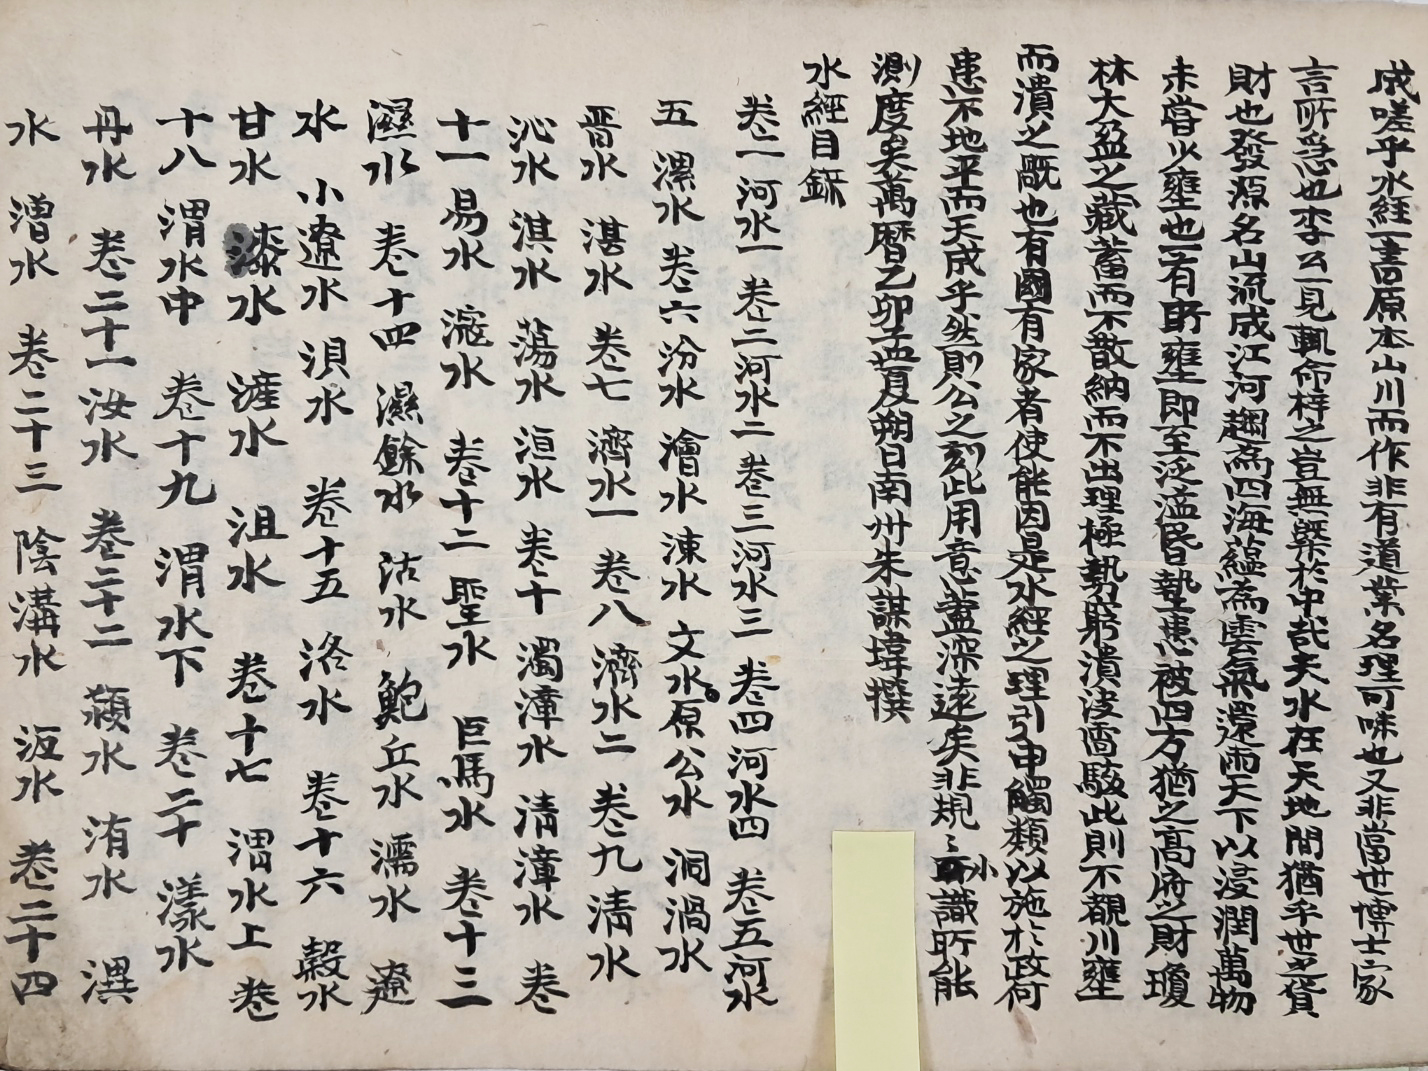 成嗟乎水經一書原本山川而作非有道業名理可味也又非當世博士家
言所急也李公一見輒命梓之豈無槩於中哉夫水在天地間猶乎世之貨
財也發源名山流成江河趨為四海蘊為雲氣還雨天下以浸潤萬物
未嘗以壅也一有所壅即至泛溢昬墊患被四方猶之高府之財瓊
林大盈之藏蓄而不散納而不出理極勢窮潰決奮駭此則不覩川壅
而潰之厩也有國有家者使能因是水經之理引申觸類以施於政何
患不地平而天成乎然則公之刻此用意盖深遠矣非規〻小識所能
測度矣萬曆乙卯孟夏朔日南州朱謀㙔撰
水經目錄
卷一 河水一 卷二河水二 卷三河水三 卷四河水四 卷五河水
五 漯水 卷六汾水 澮水 涑水 文水 原公水 洞渦水
晋水 湛水 卷七 濟水一 卷八濟水二 卷九清水
沁水 淇水 蕩水 洹水 卷十 濁漳水 清漳水 卷
十一 易水 滱水 卷十二 聖水 巨馬水 卷十三
㶟水 卷十四 㶟餘水 沽水 鮑丘水 濡水 遼
水 小遼水 浿水 卷十五 洛水 卷十六 穀水
甘水 漆水 滻水 沮水 卷十七 渭水上 卷
十八 渭水中 卷十九 渭水下 卷二十 漾水
丹水 卷二十一汝水 卷二十二 潁水 洧水 潩
水 潧水 卷二十三 陰溝水 汳水 卷二十四